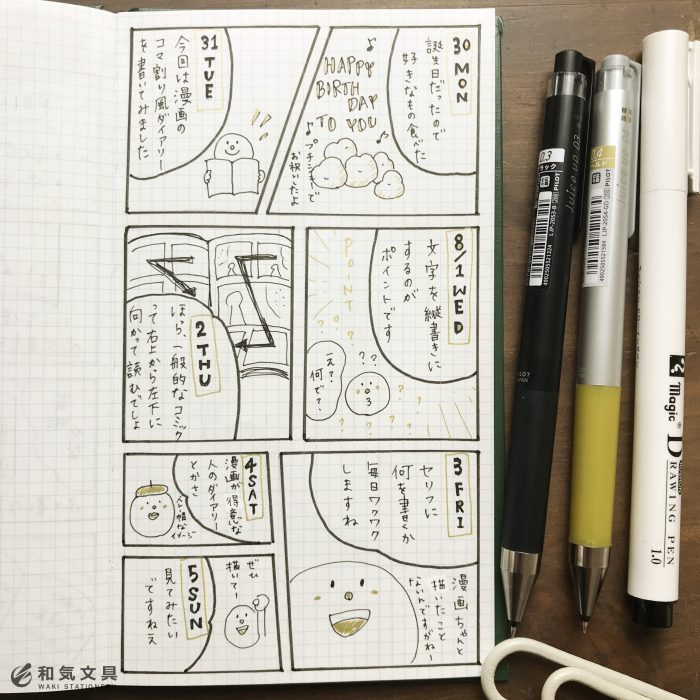 30 MON
誕生日だったので
好きなもの食べた
HAPPY
BIRTH
DAY
TO YOU
プチシューで
お祝いしたよ
31 TUE
今回は漫画の
コマ割り風ダイアリー
を書いてみました
8/1 WED
文字を縦書きに
するのが
ポイントです
POINT
え?
何ぜ?
2 THU
ほら、一般的なコミック
って右上から左下に
向かって読むでしょ
3 FRI
セリフに
何を書くか
毎日ワクワク
しますね
漫画ちゃんと
描いたこと
ないんですがねー
4 SAT
漫画が得意な
人のダイアリー
とかさ
ベレー帽な
イメージ
5 SUN
見てみたい
ですねえ
ぜひ
描いてー
0.3
ブラック
Juice up 03
LJP-20S3-B
PILOT
4902505521324
04
ゴールド
Juice up 04
LJP-20S4-GD
PILOT
4902505521584
PILOT
JAPAN
Magic®
DRAWING PEN
1.0
和気文具
WAKI STATIONERY